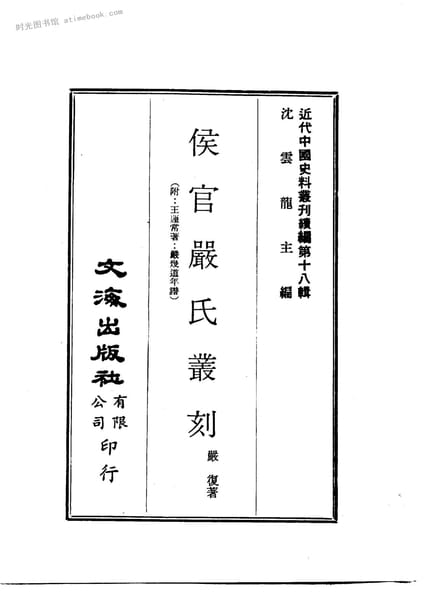 时光图书馆 atimebook.com
近代中國史料叢刊續編第十八輯
沈雲龍主編
侯官嚴氏叢刻
（附：王蘧常著：嚴幾道年譜）
嚴復著
文海出版社
有限
公司
印行